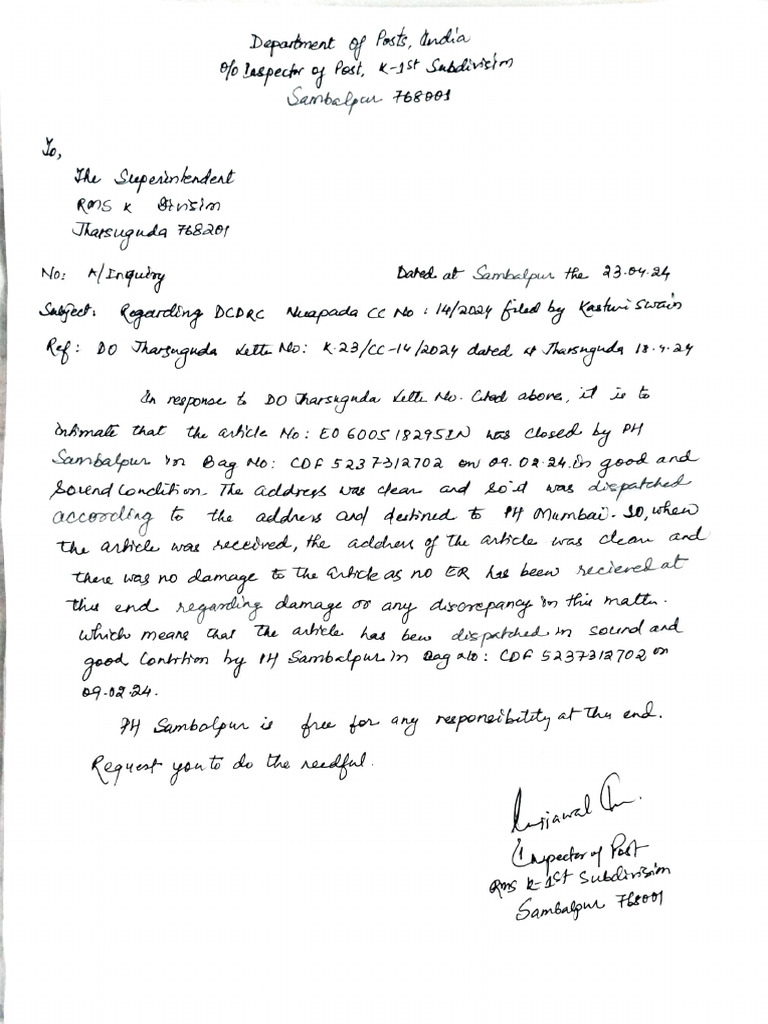 Department of Posts, India
O/o Inspector of Post, K-1st Subdivision
Sambalpur 768001
To,
The Superintendent
RMS K Division
Jharsuguda 768201
No: A/Inquiry Dated at Sambalpur the 23.04.24
Subject: Regarding DCDRC Nuapada CC No: 14/2024 filed by Kasturi Swain
Ref: DO Jharsuguda Letter No: K-23/CC-14/2024 dated at Jharsuguda 18.4.24
In response to DO Jharsuguda Letter No. Cited above, it is to
intimate that the article No: EO 600518295IN was closed by PH
Sambalpur in Bag No: CDF 5237312702 on 09.02.24 in good and
Sound Condition. The address was clear and so it was dispatched
according to the address and destined to PH Mumbai. So, when
the article was received, the address of the article was clear and
there was no damage to the article as no ER has been recieved at
this end regarding damage or any discrepancy in this matter.
Which means that the article has been dispatched in sound and
good Contition by PH Sambalpur in Bag No: CDF 5237312702 on
09.02.24.
PH Sambalpur is free for any responsibility at this end.
Request you to do the needful.
Inspector of Post
RMS K-1st Subdivision
Sambalpur 768001